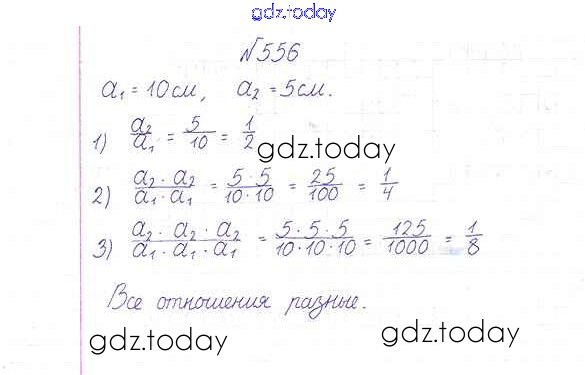 gdz.today
№556
a₁ = 10 см, a₂ = 5 см.
1) a₂/a₁ = 5/10 = 1/2
gdz.today
2) a₂ · a₂ / a₁ · a₁ = 5 · 5 / 10 · 10 = 25/100 = 1/4
3) a₂ · a₂ · a₂ / a₁ · a₁ · a₁ = 5 · 5 · 5 / 10 · 10 · 10 = 125/1000 = 1/8
Все отношения разные.
gdz.today
gdz.today